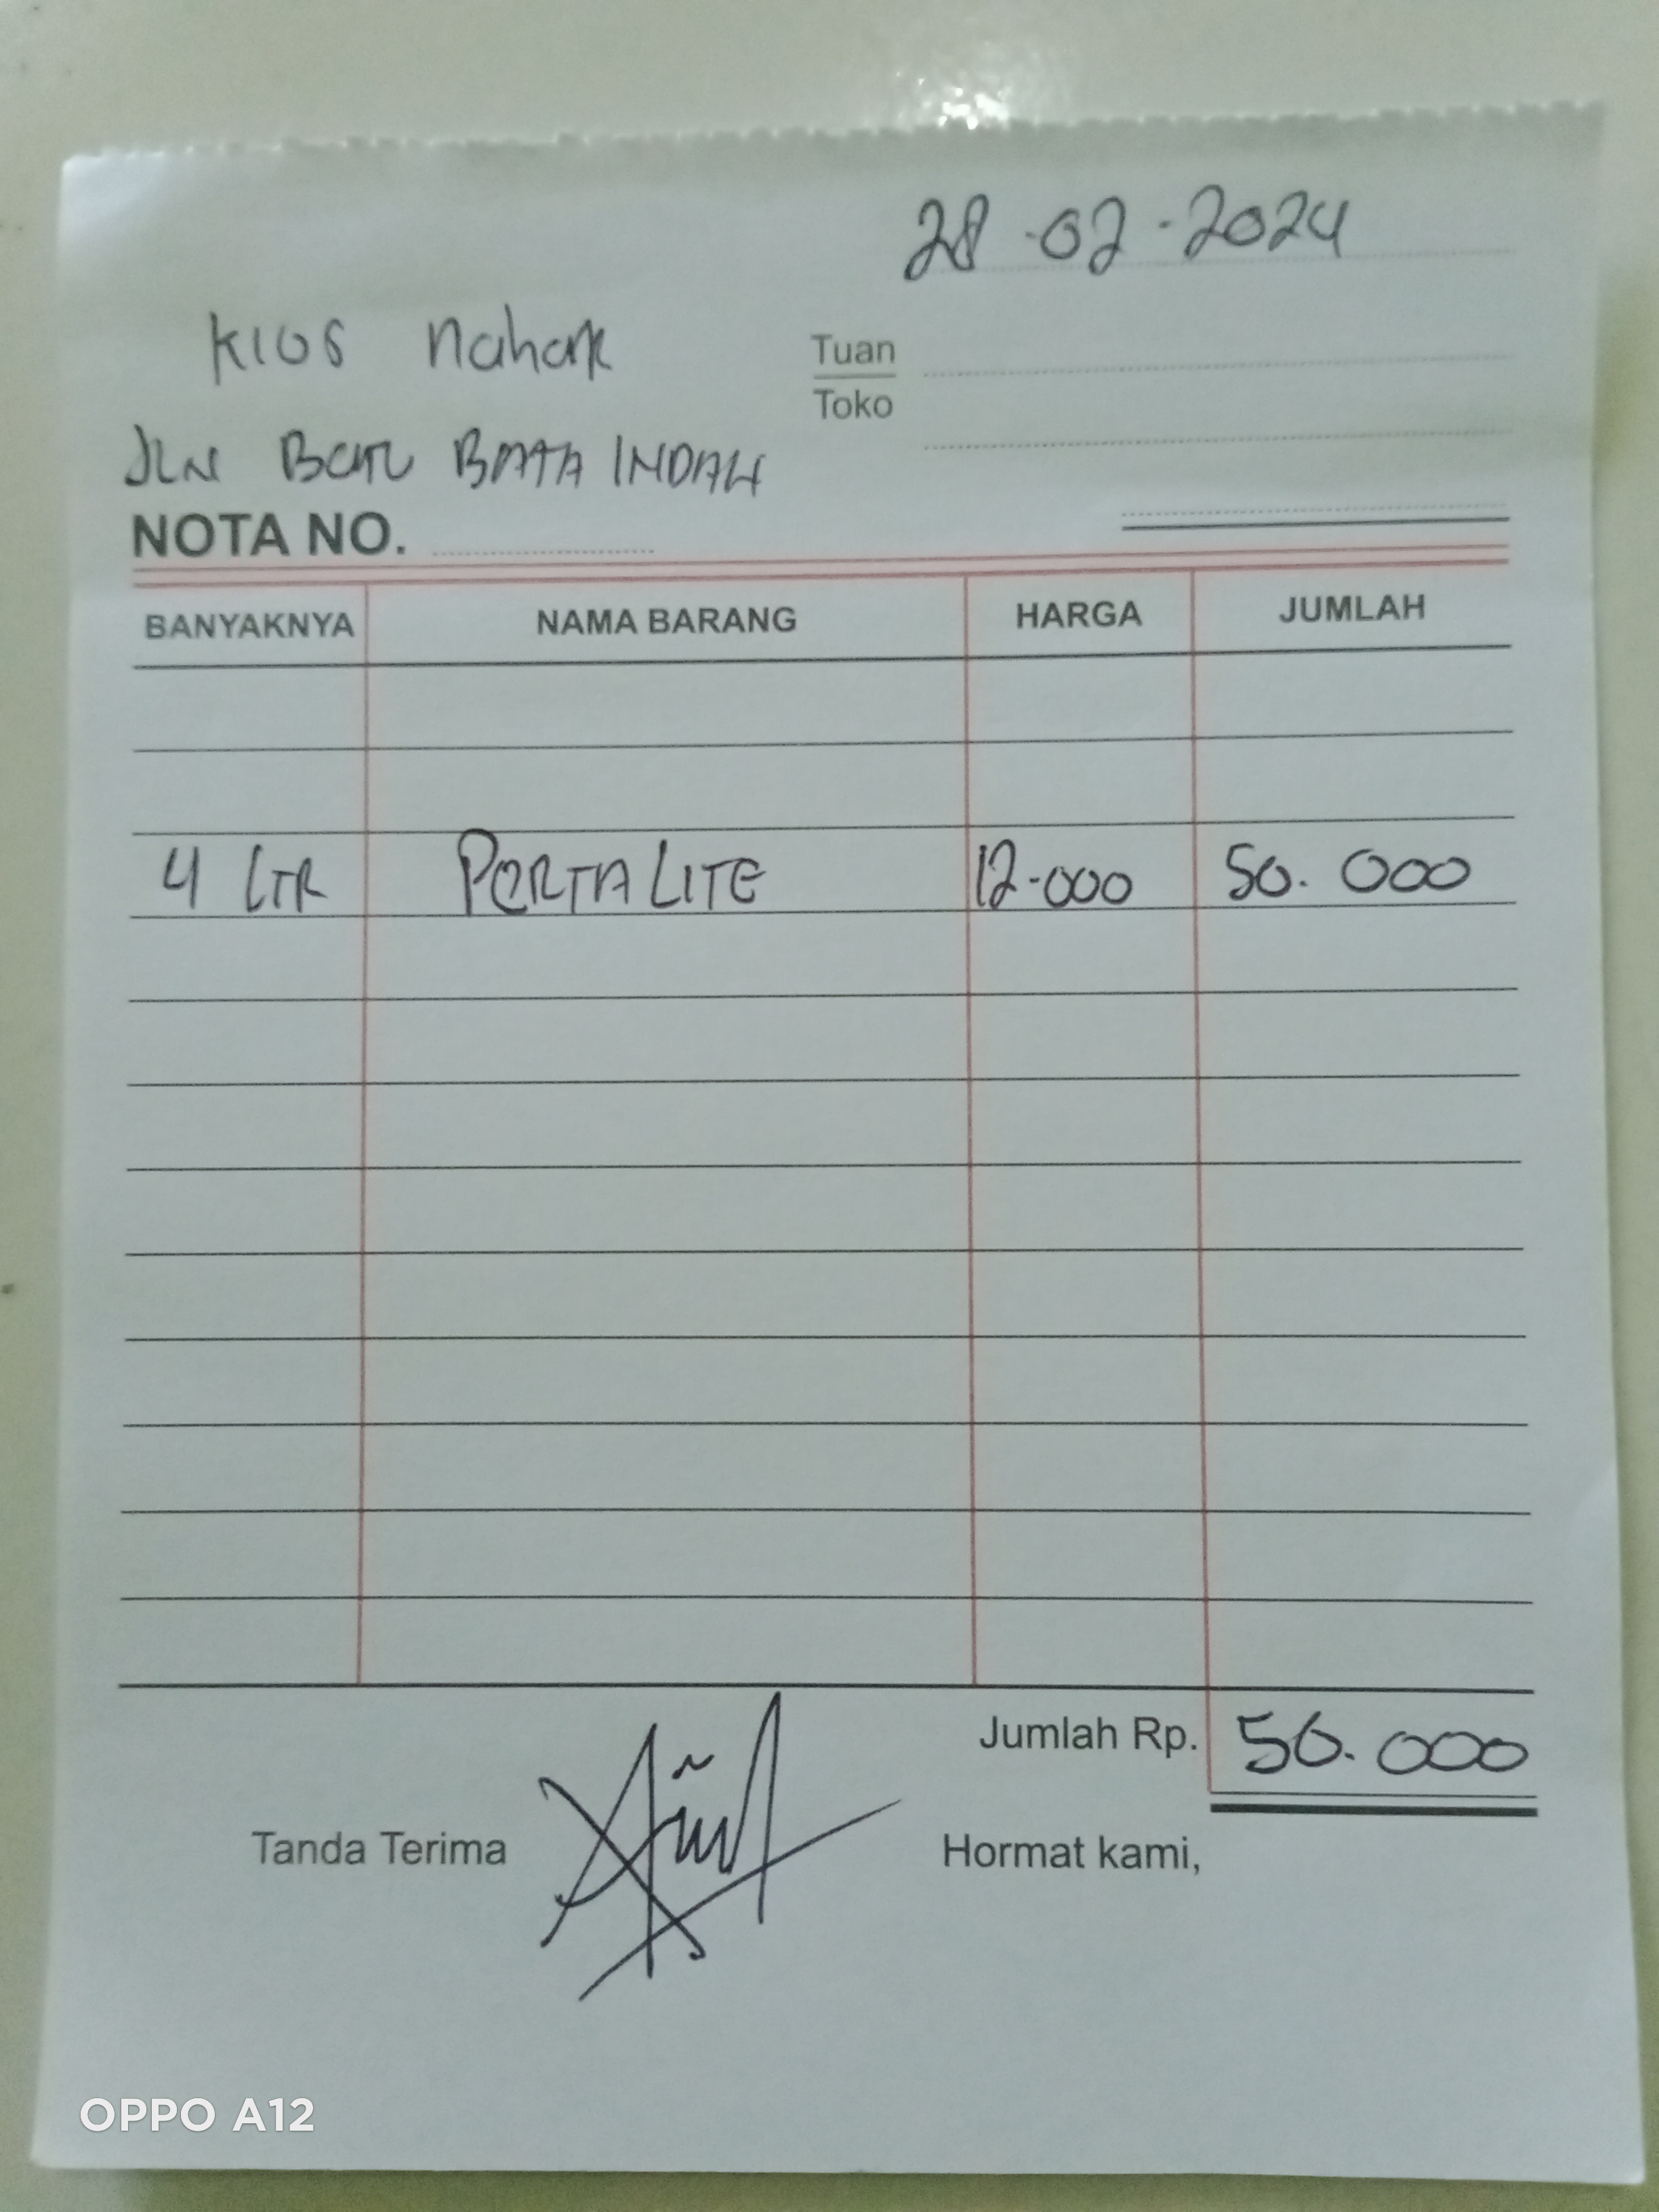 28-02-2024
Kios Nahak
Tuan
Toko
JLN BATU BATA INDAH
NOTA NO.
BANYAKNYA NAMA BARANG HARGA JUMLAH
4 LTR PERTALITE 12.000 50.000
Jumlah Rp. 50.000
Tanda Terima Hormat kami,
OPPO A12